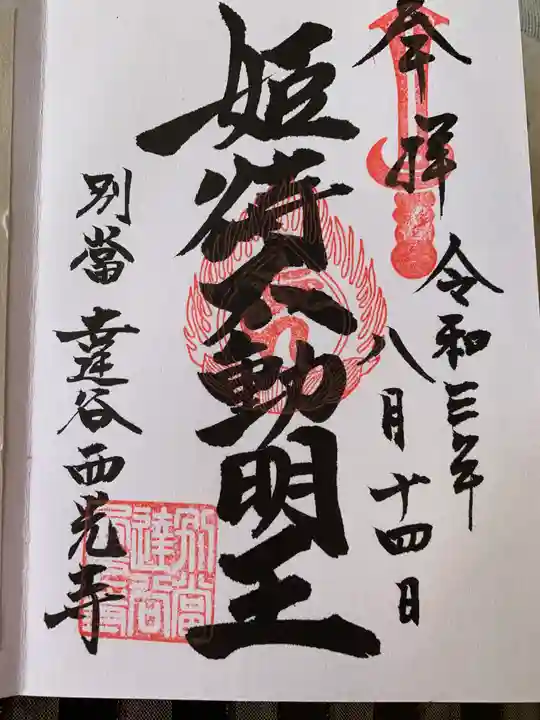 奉拝
令和三年
八月十四日
姫待不動明王
別當 達谷西光寺
別當達谷